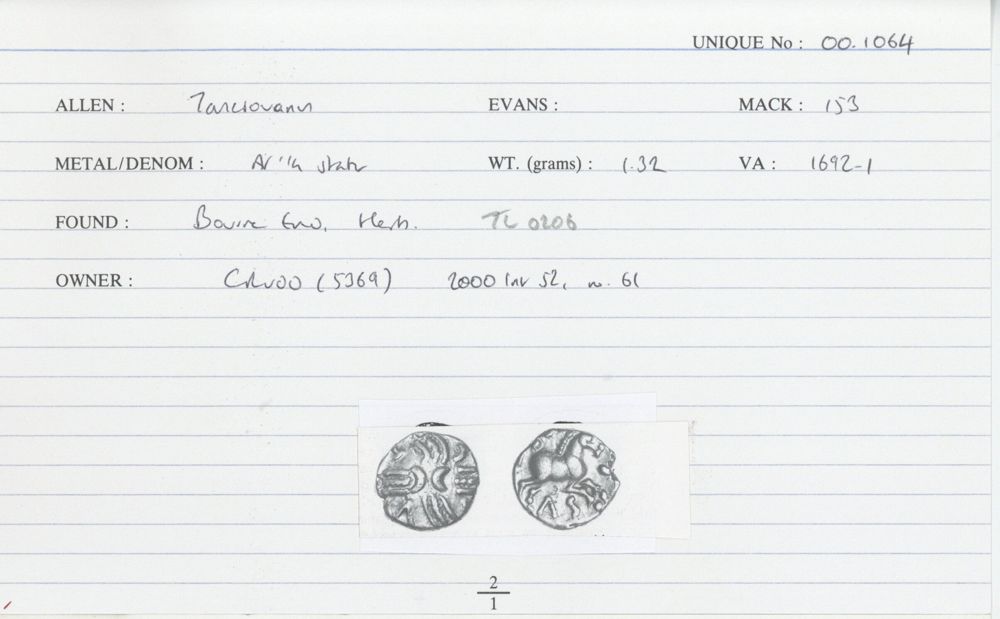 UNIQUE No : 00.1064
ALLEN : Tasciovanus EVANS : MACK : 153
METAL/DENOM : AV 1/4 stater WT. (grams) : 1.32 VA : 1692-1
FOUND : Bourne End, Herts. TL 0206
OWNER : CR (5369) 2000 Inv 52, no. 61
2
1